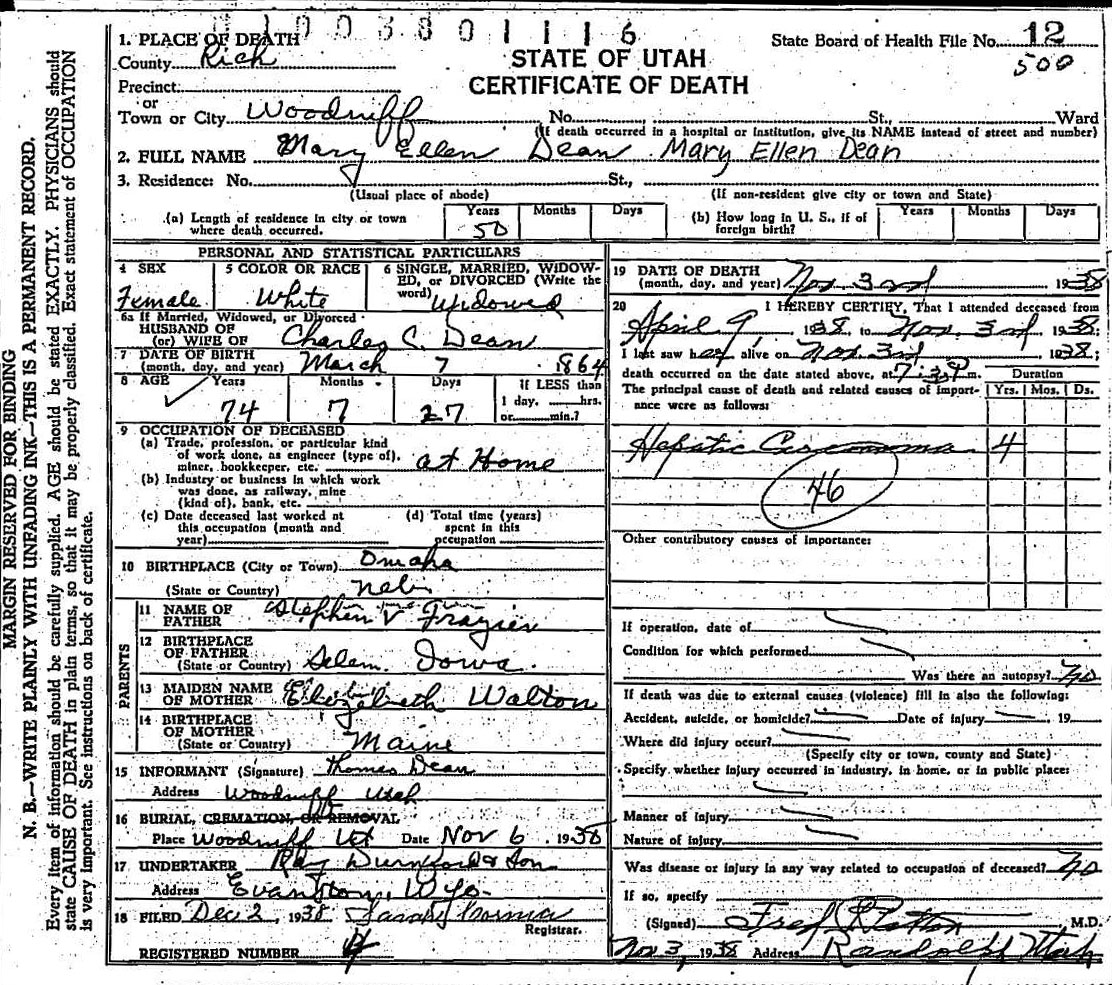 01003801116
1. PLACE OF DEATH
County Rich
STATE OF UTAH
CERTIFICATE OF DEATH
State Board of Health File No. 12
500
Precinct
or
Town or City Woodruff No. St., Ward
(If death occurred in a hospital or institution, give its NAME instead of street and number)
2. FULL NAME Mary Ellen Dean Mary Ellen Dean
3. Residence: No. St.,
(Usual place of abode) (If non-resident give city or town and State)
(a) Length of residence in city or town where death occurred. Years 50 Months Days
(b) How long in U. S., if of foreign birth? Years Months Days
PERSONAL AND STATISTICAL PARTICULARS
4 SEX Female
5 COLOR OR RACE White
6 SINGLE, MARRIED, WIDOWED, or DIVORCED (Write the word) Widowed
6a If Married, Widowed, or Divorced
HUSBAND OF
(or) WIFE OF Charles C. Dean
7 DATE OF BIRTH
(month, day, and year) March 7 1864
8 AGE Years 74 Months 7 Days 27
If LESS than
1 day, hrs.
or min.?
9 OCCUPATION OF DECEASED
(a) Trade, profession, or particular kind
of work done, as engineer (type of),
miner, bookkeeper, etc. at Home
(b) Industry or business in which work
was done, as railway, mine
(kind of), bank, etc.
(c) Date deceased last worked at
this occupation (month and
year)
(d) Total time (years)
spent in this
occupation
10 BIRTHPLACE (City or Town) Omaha
(State or Country) Nebr
PARENTS
11 NAME OF
FATHER Stephen V Frazier
12 BIRTHPLACE
OF FATHER
(State or Country) Salem Iowa.
13 MAIDEN NAME
OF MOTHER Elizabeth Walton
14 BIRTHPLACE
OF MOTHER
(State or Country) Maine
15 INFORMANT (Signature) Thomas Dean
Address Woodruff Utah
16 BURIAL, CREMATION, OR REMOVAL
Place Woodruff Ut Date Nov 6, 1938
17 UNDERTAKER Ray Durnford & Son
Address Evanston, Wyo.
18 FILED Dec 2, 1938
Registrar.
REGISTERED NUMBER
19 DATE OF DEATH
(month, day, and year) Nov 3rd 1938
20 I HEREBY CERTIFY, That I attended deceased from
April 9, 1938, to Nov. 3rd 1938;
I last saw her alive on Nov. 3rd 1938;
death occurred on the date stated above, at 7:30 P m.
The principal cause of death and related causes of importance were as follows:
Duration
Yrs. Mos. Ds.
Hepatic Carcinoma 4
46
Other contributory causes of importance:
If operation, date of
Condition for which performed
Was there an autopsy? No
If death was due to external causes (violence) fill in also the following:
Accident, suicide, or homicide? Date of injury 19
Where did injury occur?
(Specify city or town, county and State)
Specify whether injury occurred in industry, in home, or in public place:
Manner of injury
Nature of injury
Was disease or injury in any way related to occupation of deceased? No
If so, specify
(Signed) Fred M.D.
Nov 3, 1938 Address Randolph Utah
MARGIN RESERVED FOR BINDING
N. B.—WRITE PLAINLY WITH UNFADING INK—THIS IS A PERMANENT RECORD.
Every item of information should be carefully supplied. AGE should be stated EXACTLY. PHYSICIANS should
state CAUSE OF DEATH in plain terms, so that it may be properly classified. Exact statement of OCCUPATION
is very important. See instructions on back of certificate.